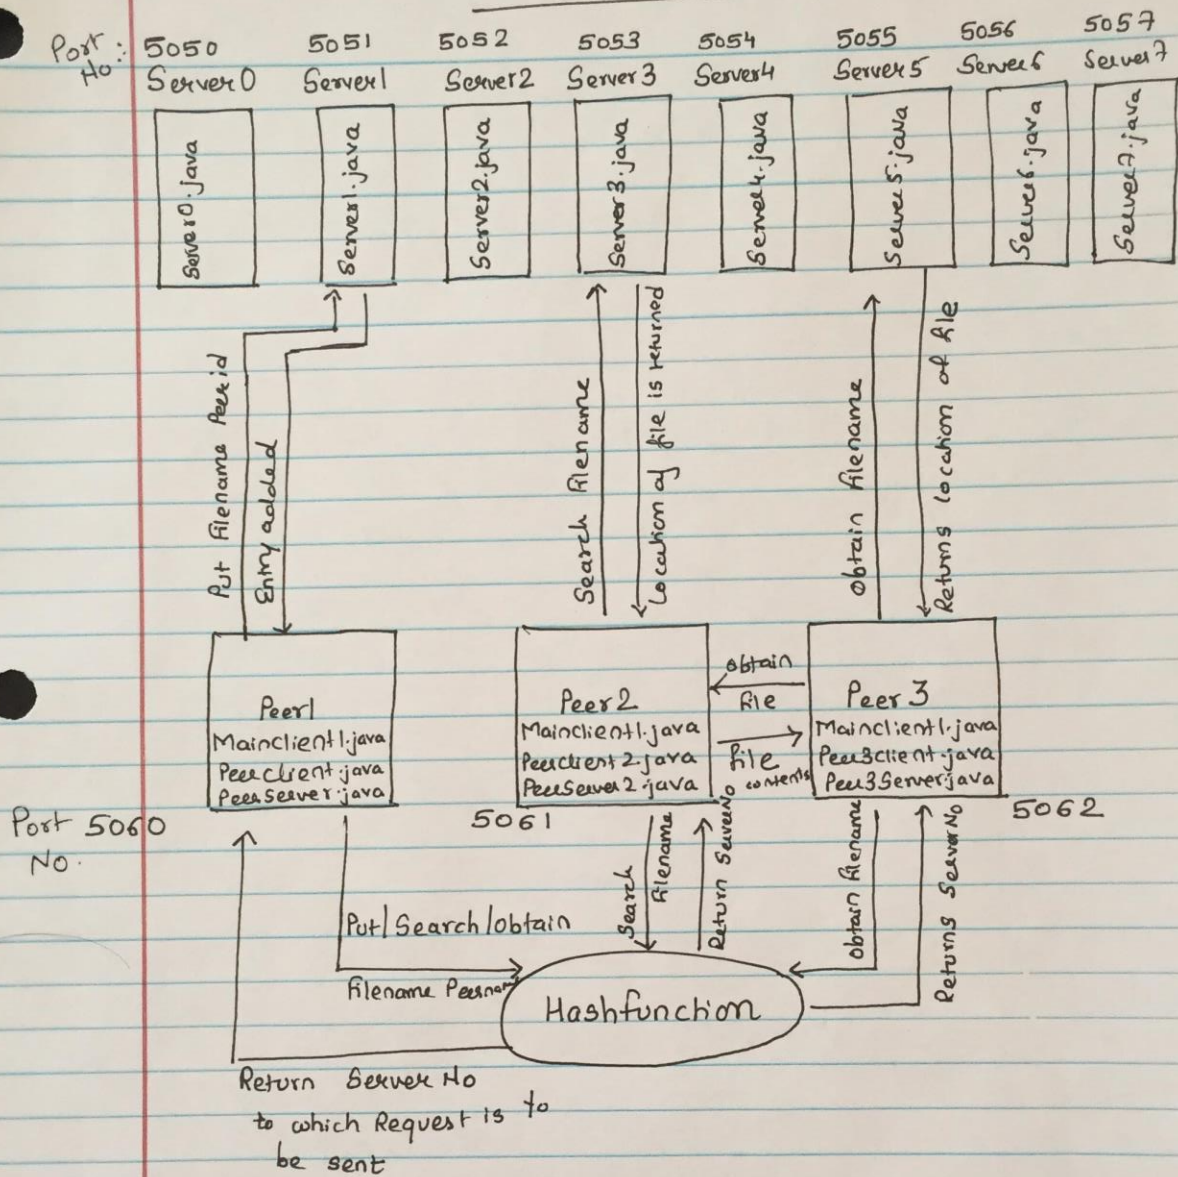 Port No: 5050 5051 5052 5053 5054 5055 5056 5057
Server0 Server1 Server2 Server3 Server4 Server5 Server6 Server7
Server0.java
Server1.java
Server2.java
Server3.java
Server4.java
Server5.java
Server6.java
Server7.java
Put Filename Peerid
Entry added
Search Filename
Location of file is returned
Obtain Filename
Returns location of file
Peer1
Mainclient1.java
Peerclient.java
PeerServer.java
Peer2
Mainclient1.java
Peerclient2.java
PeerServer2.java
obtain
file
file
contents
Peer3
Mainclient1.java
Peer3client.java
Peer3Server.java
Port No. 5060 5061 5062
Put/Search/obtain
Filename Peername
Search
Filename
Return ServerNo
Obtain filename
Returns ServerNo
Hashfunction
Return Server No
to which Request is to
be sent